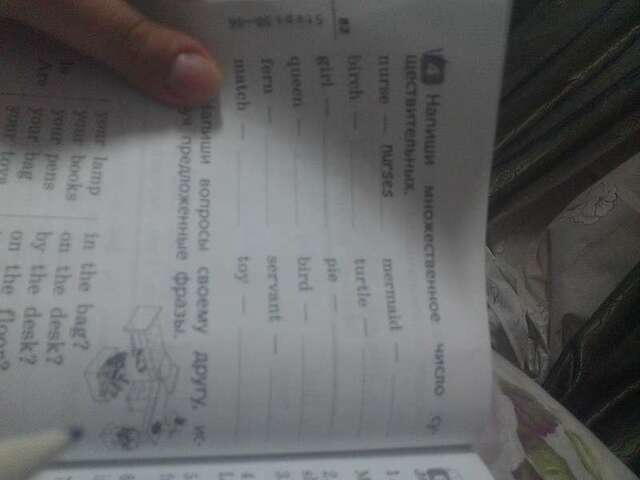 Напиши множественное число су-
ществительных.
nurse — nurses
mermaid —
birch —
turtle —
girl —
pie —
queen —
bird —
fern —
servant —
match —
toy —
вопросы своему другу, ис-
предложенные фразы.
your lamp in the bag?
your books on the desk?
Are your pens by the desk?
your bag on the floor?
your toys
82
Steps 39–40